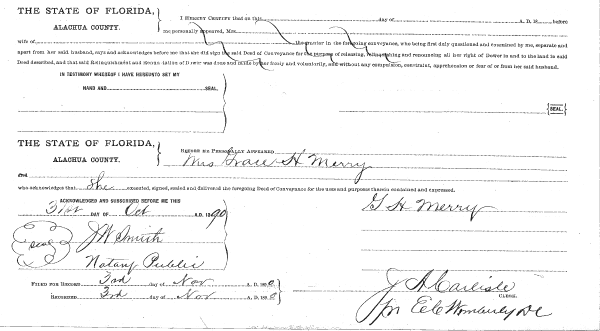 THE STATE OF FLORIDA,
ALACHUA COUNTY.
I HEREBY CERTIFY that on this day of A. D. 18 before
me personally appeared, Mrs.
wife of the grantor in the foregoing conveyance, who being first duly questioned and examined by me, separate and
apart from her said husband, says and acknowledges before me that she did sign the said Deed of Conveyance for the purpose of releasing, relinquishing and renouncing all her right of Dower in and to the land in said
Deed described, and that said Relinquishment and Renunciation of Dower was done and made by her freely and voluntarily, and without any compulsion, constraint, apprehension or fear of or from her said husband.
IN TESTIMONY WHEREOF I HAVE HEREUNTO SET MY
HAND AND SEAL.
SEAL.
THE STATE OF FLORIDA,
ALACHUA COUNTY.
BEFORE ME PERSONALLY APPEARED
Mrs Grace H Merry
and
who acknowledges that she executed, signed, sealed and delivered the foregoing Deed of Conveyance for the uses and purposes therein contained and expressed.
ACKNOWLEDGED AND SUBSCRIBED BEFORE ME THIS
31st DAY OF Oct A. D. 1890
G H Merry
Seal
J W Smith
Notary Public
FILED FOR RECORD 3rd day of Nov A. D. 1890
RECORDED 3rd day of Nov A. D. 189
J A Carlisle
CLERK.
Per E C Wimberly DC